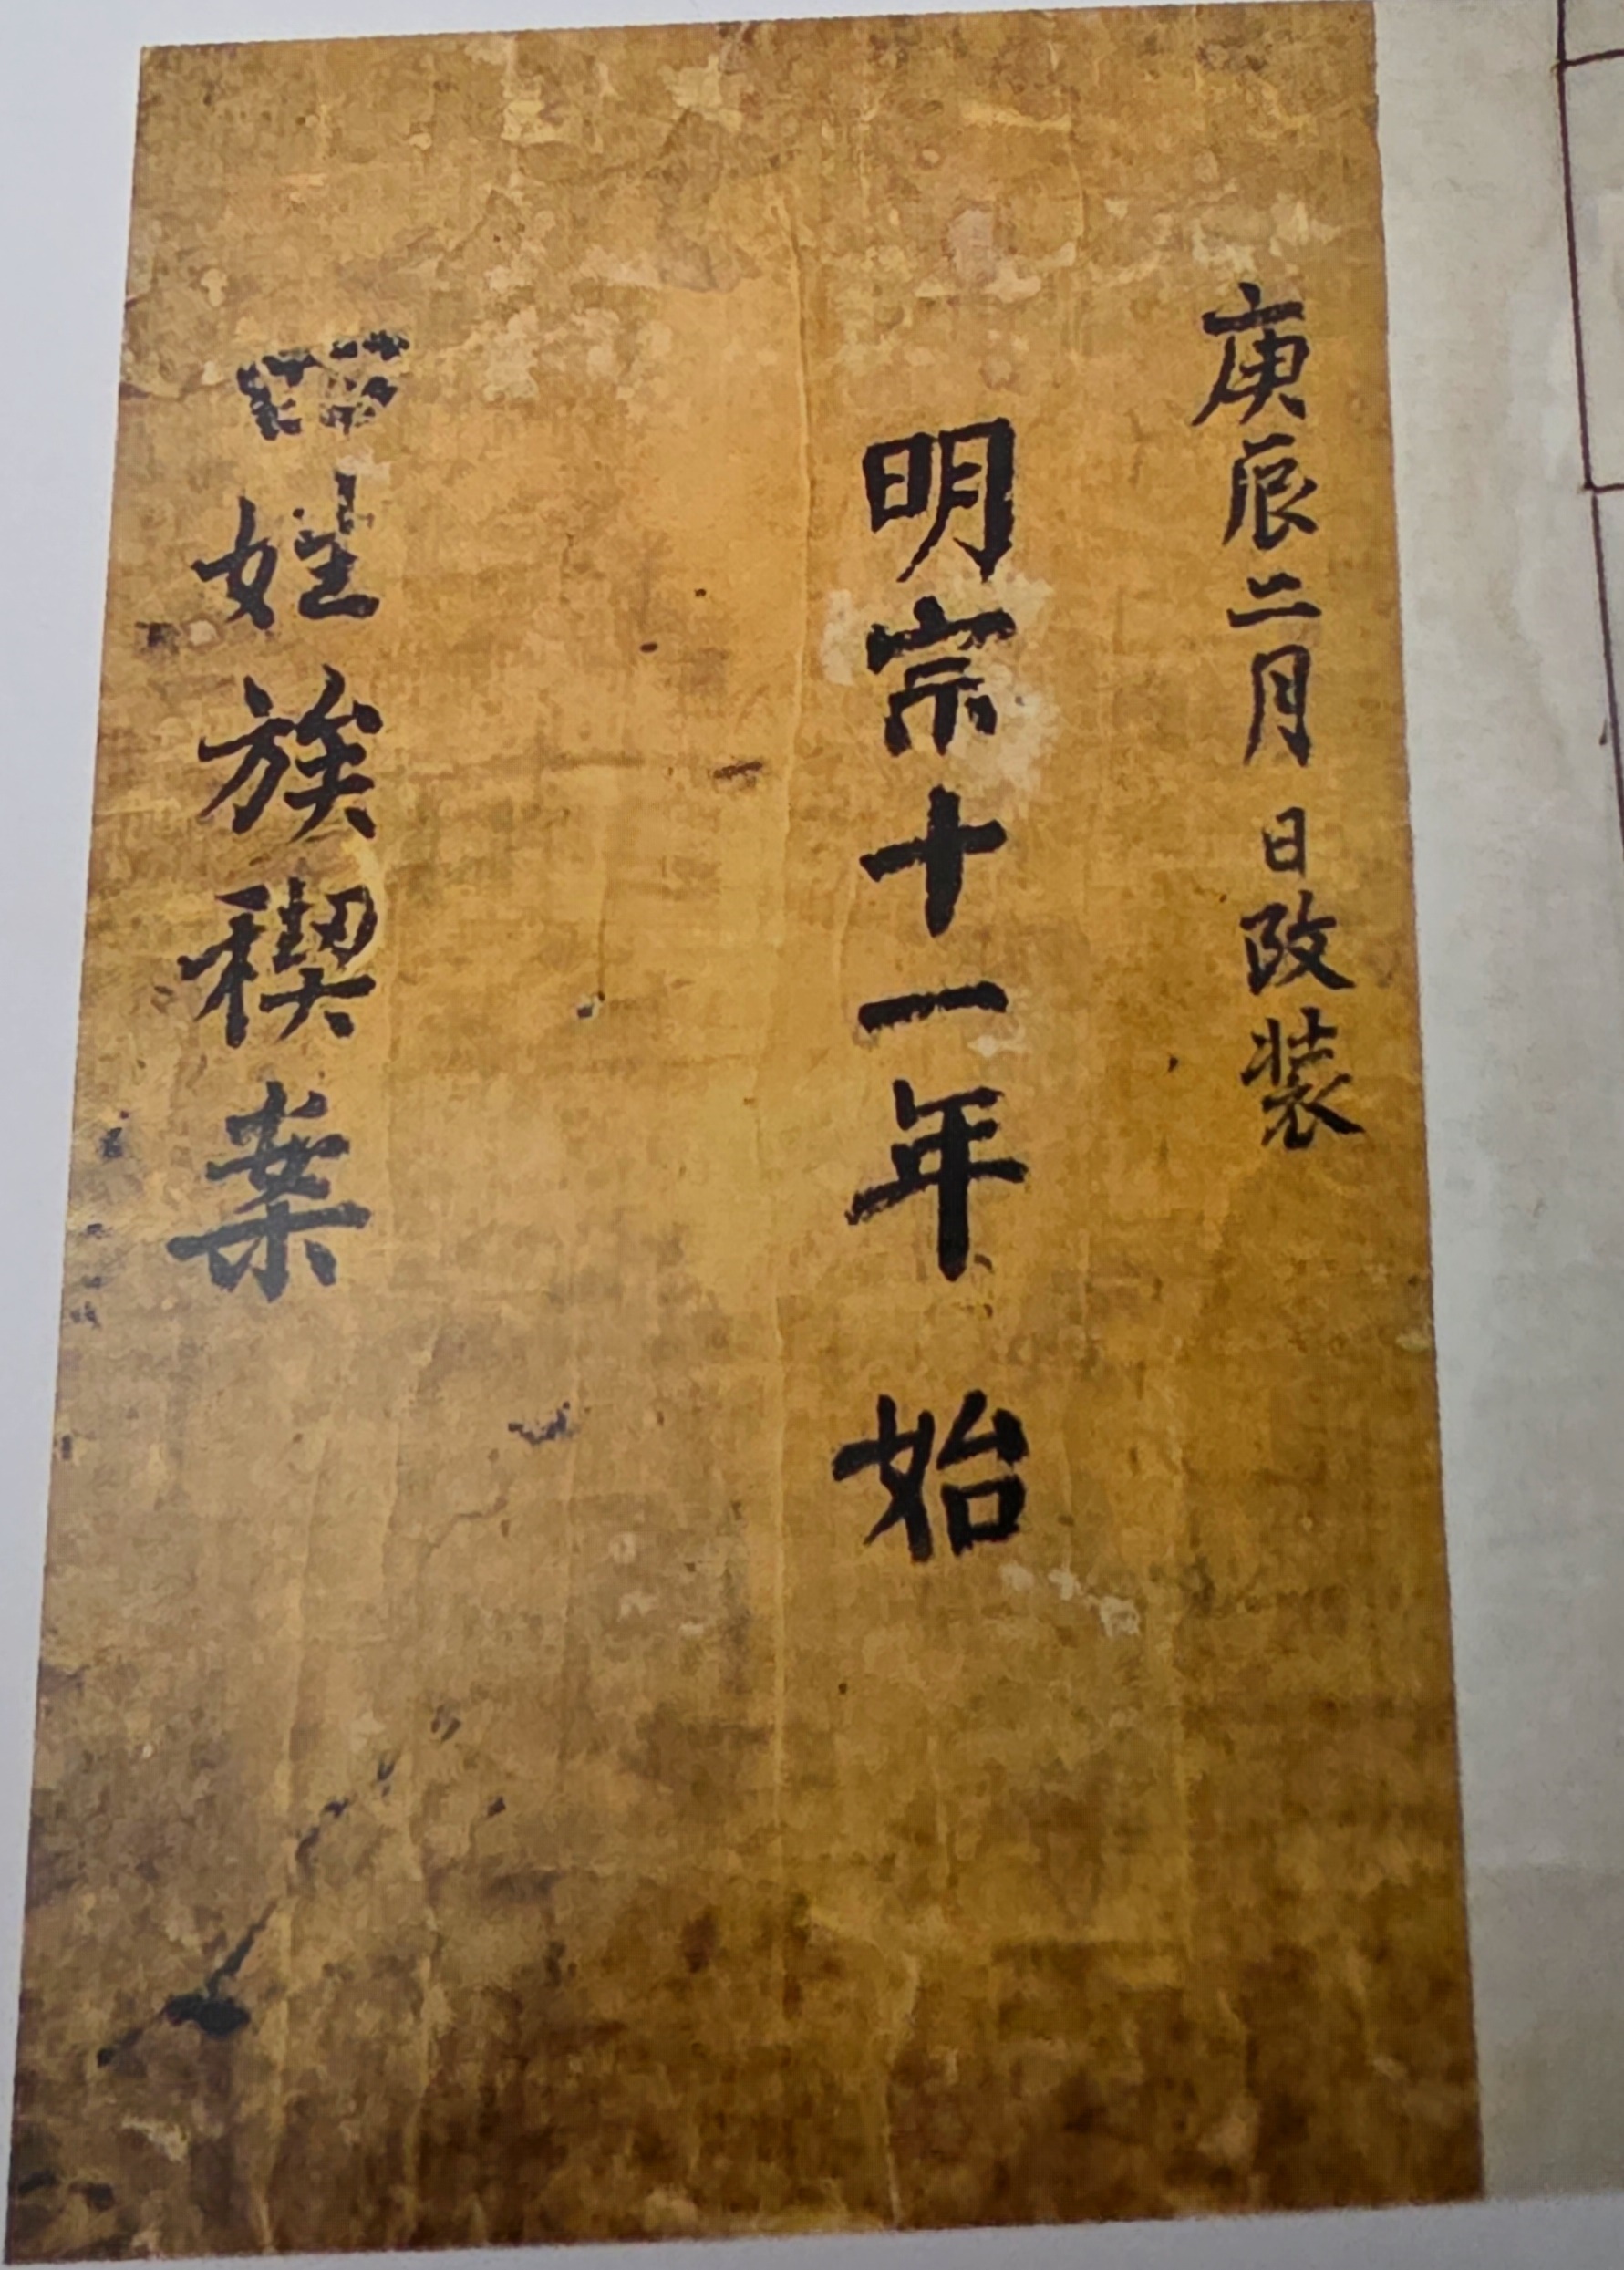 庚辰二月 日改裝
明宗十一年 始
四姓族稧案